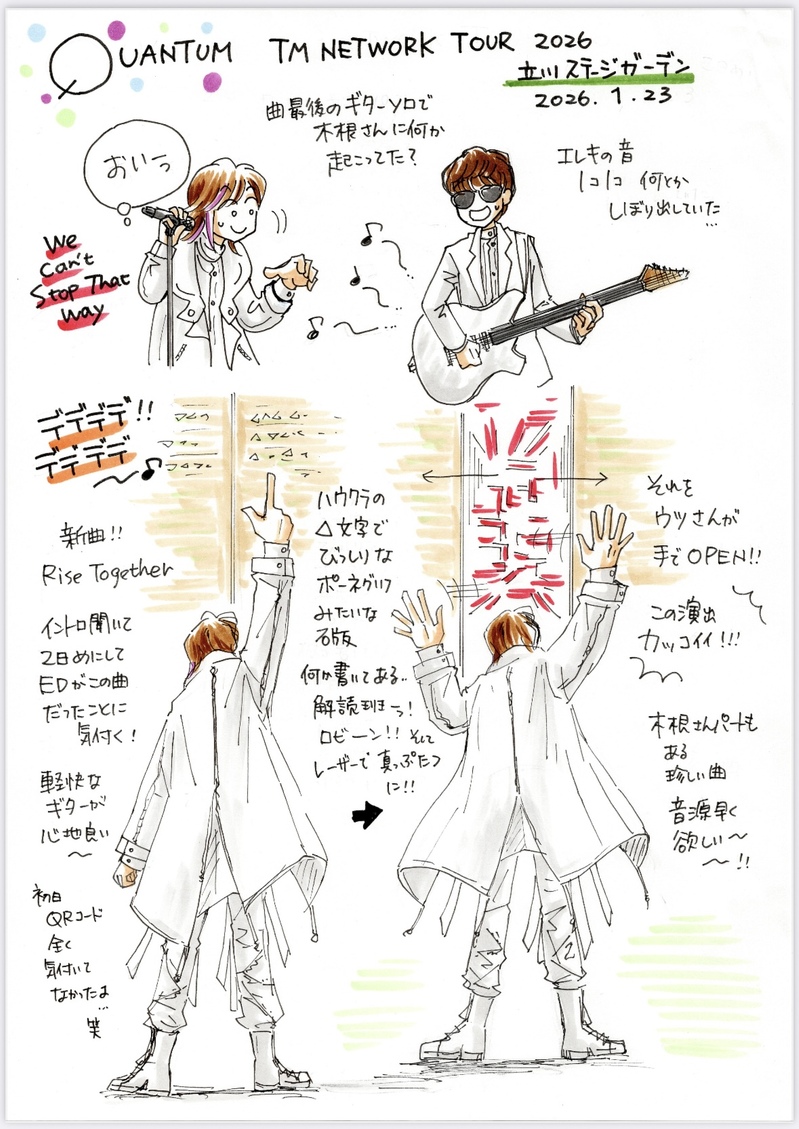 QUANTUM TM NETWORK TOUR 2026
立川ステージガーデン
2026.1.23
曲最後のギターソロで
木根さんに何か
起こってた？
おいっ
エレキの音
1コ1コ 何とか
しぼり出していた
…
We
Can't
Stop That
Way
デデデデ!!
デデデデ
新曲!!
Rise Together
イントロ聞いて
2日めにして
EDがこの曲
だったことに
気付く！
軽快な
ギターが
心地良い
～
初日
QRコード
全く
気付いて
なかったよ
…
笑
ハウクラの
△文字で
びっしりな
ボーネグリフ
みたいな
石版
何か書いてある..
解読班まーっ！
ロビーン!! そして
レーザーで真っぷたつ
に!!
それを
ウツさんが
手でOPEN!!
この演出
カッコイイ!!!
木根さんパートも
ある
珍しい曲
音源早く
欲しい～
～!!